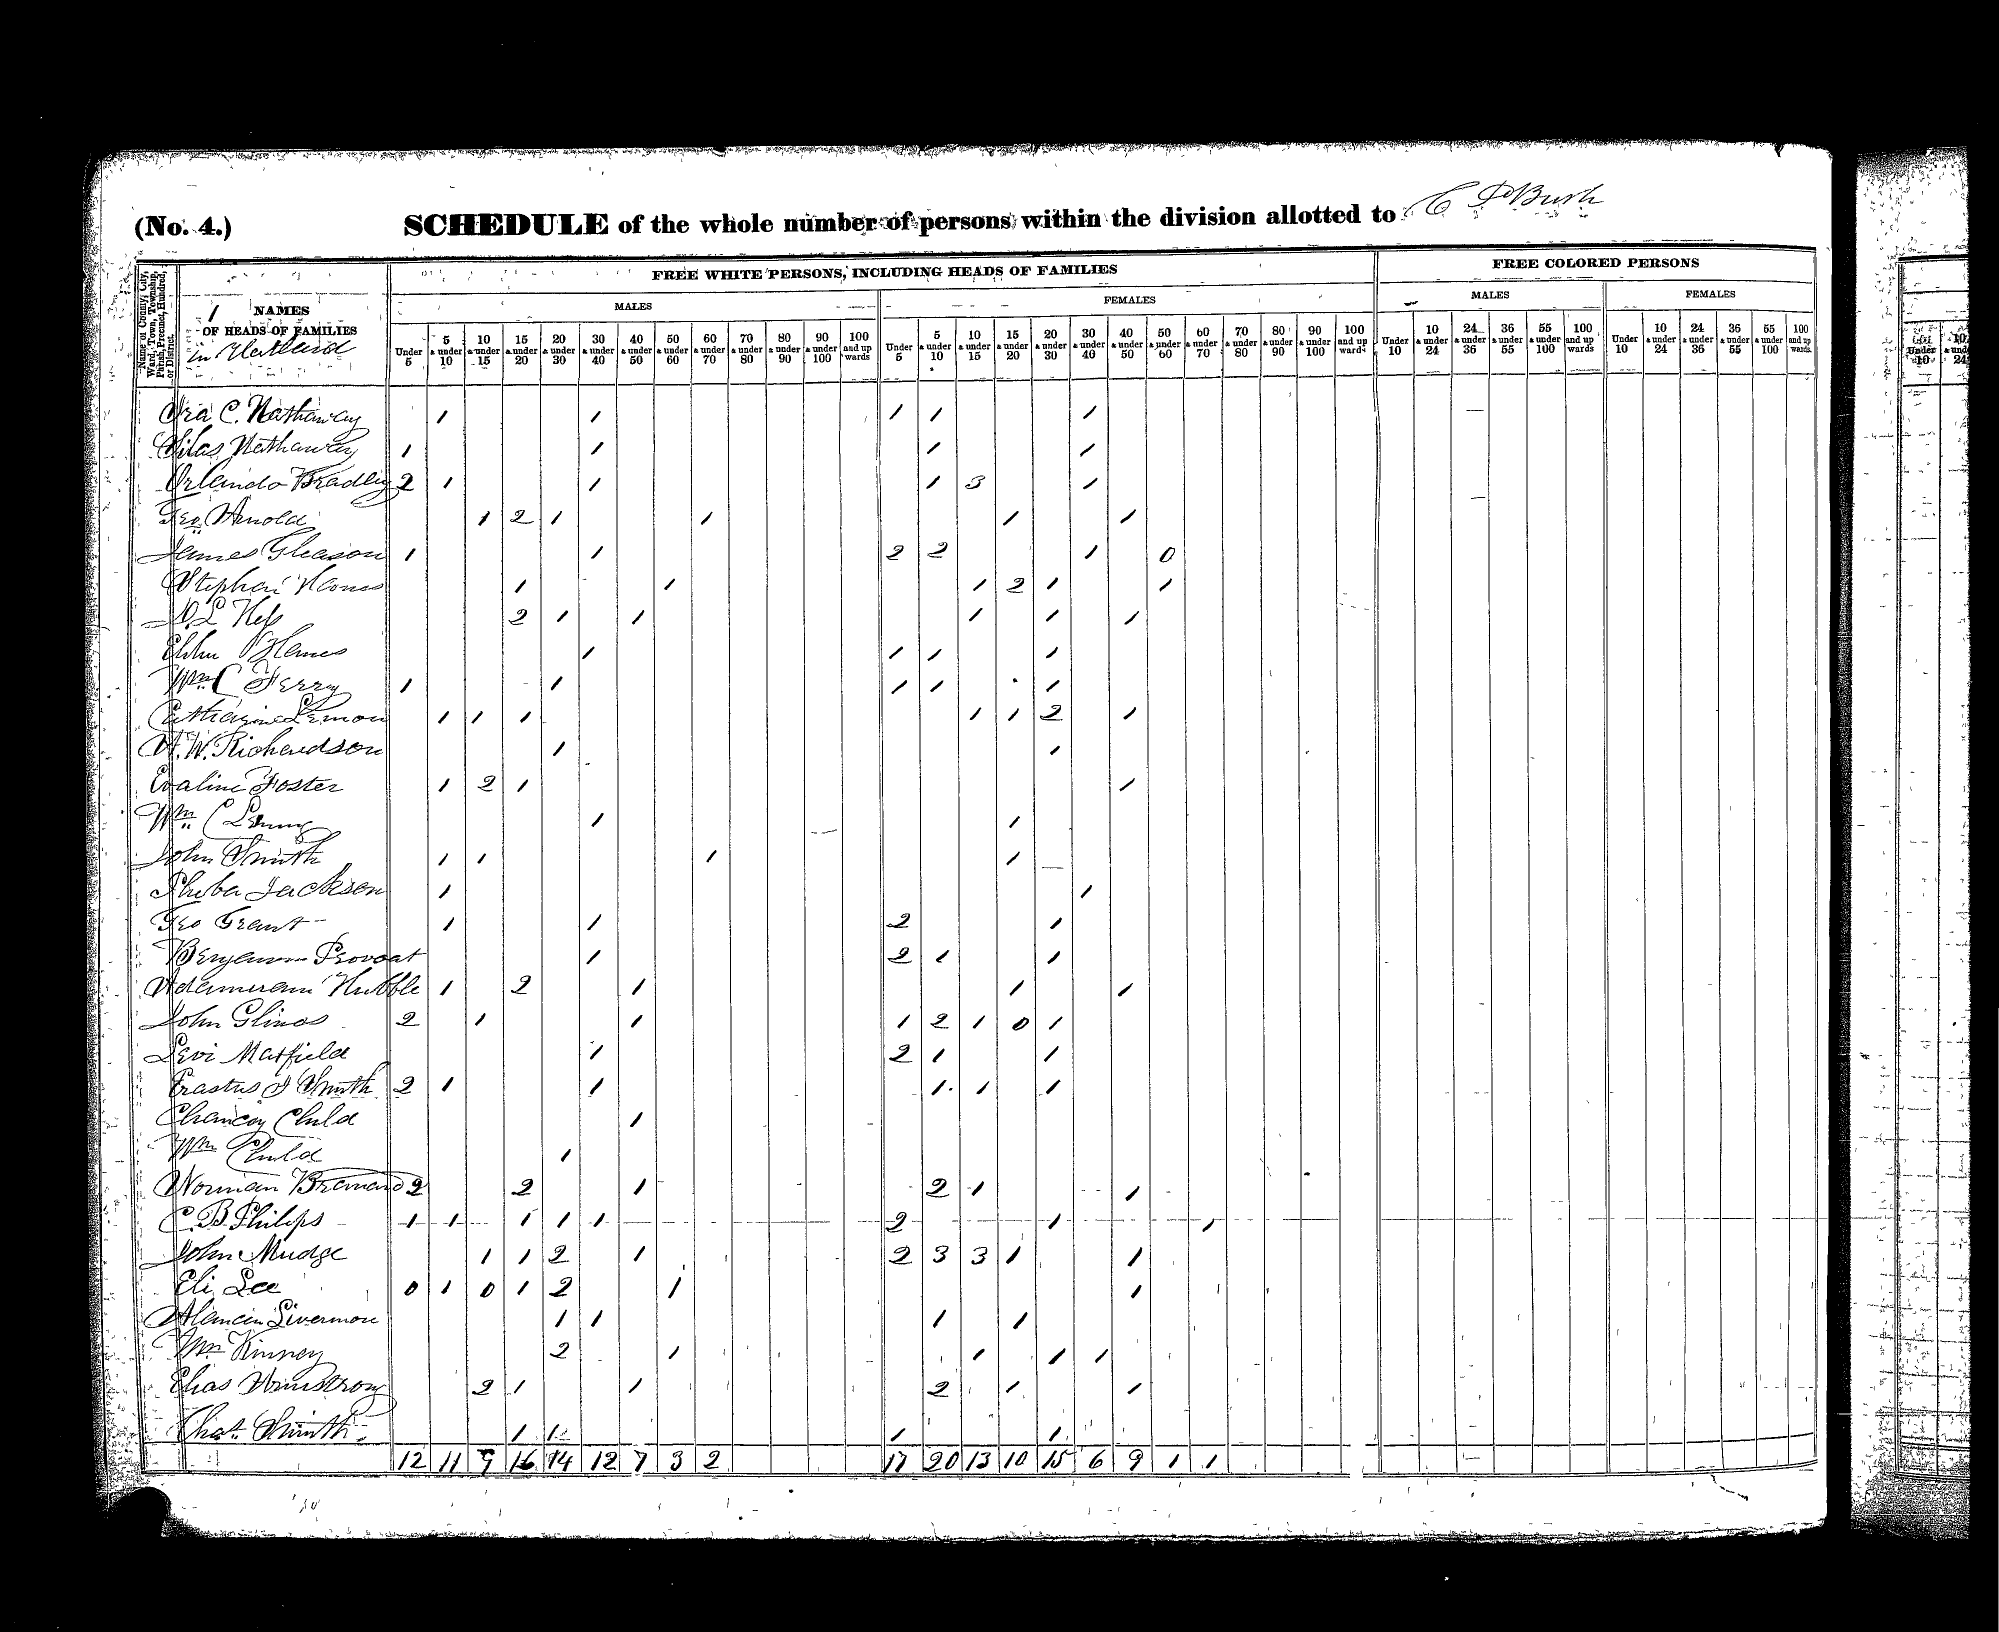 (No. 4.) SCHEDULE of the whole number of persons within the division allotted to C P Bush
Name of County, City, Ward, Town, Township, Parish, Precinct, Hundred, or District.
1 NAMES OF HEADS OF FAMILIES
in Hartland
FREE WHITE PERSONS, INCLUDING HEADS OF FAMILIES
FREE COLORED PERSONS
MALES FEMALES MALES FEMALES
Under 5 5 & under 10 10 & under 15 15 & under 20 20 & under 30 30 & under 40 40 & under 50 50 & under 60 60 & under 70 70 & under 80 80 & under 90 90 & under 100 100 and up wards Under 5 5 & under 10 10 & under 15 15 & under 20 20 & under 30 30 & under 40 40 & under 50 50 & under 60 60 & under 70 70 & under 80 80 & under 90 90 & under 100 100 and up wards Under 10 10 & under 24 24 & under 36 36 & under 55 55 & under 100 100 and up wards Under 10 10 & under 24 24 & under 36 36 & under 55 55 & under 100 100 and up wards
Ira C. Hathaway 1 1 1 1 1
Silas Hathaway 1 1 1 1
Orlando Bradley 2 1 1 1 3 1
Geo Arnold 1 2 1 1 1 1
James Gleason 1 1 2 2 1 0
Stephen 1 1 1 2 1 1
Hess 2 1 1 1 1 1
1 1 1 1
Wm C Ferry 1 1 1 1 1
Catharine Lemon 1 1 1 1 1 2 1
A. W. Richardson 1 1
Evaline Foster 1 2 1 1
Wm C 1 1
John Smith 1 1 1 1
Pheba Jackson 1 1
Geo Grant 1 1 2 1
Provoat 1 2 1 1
Hubble 1 2 1 1 1
John Glines 2 1 1 1 2 1 0 1
Levi Matfield 1 2 1 1
Erastus J Smith 2 1 1 1 1 1
Chancey Child 1
Wm Child 1
Norman 2 2 1 2 1 1
C. B. Philips 1 1 1 1 1 2 1 1
John Mudge 1 1 2 1 2 3 3 1 1
Eli Lee 0 1 0 1 2 1 1
Livermore 1 1 1 1
Wm Kinney 2 1 1 1 1
Elias Armstrong 2 1 1 2 1 1
Chas. Smith 1 1 1 1
12 11 9 16 14 12 7 3 2 17 20 13 10 15 6 9 1 1